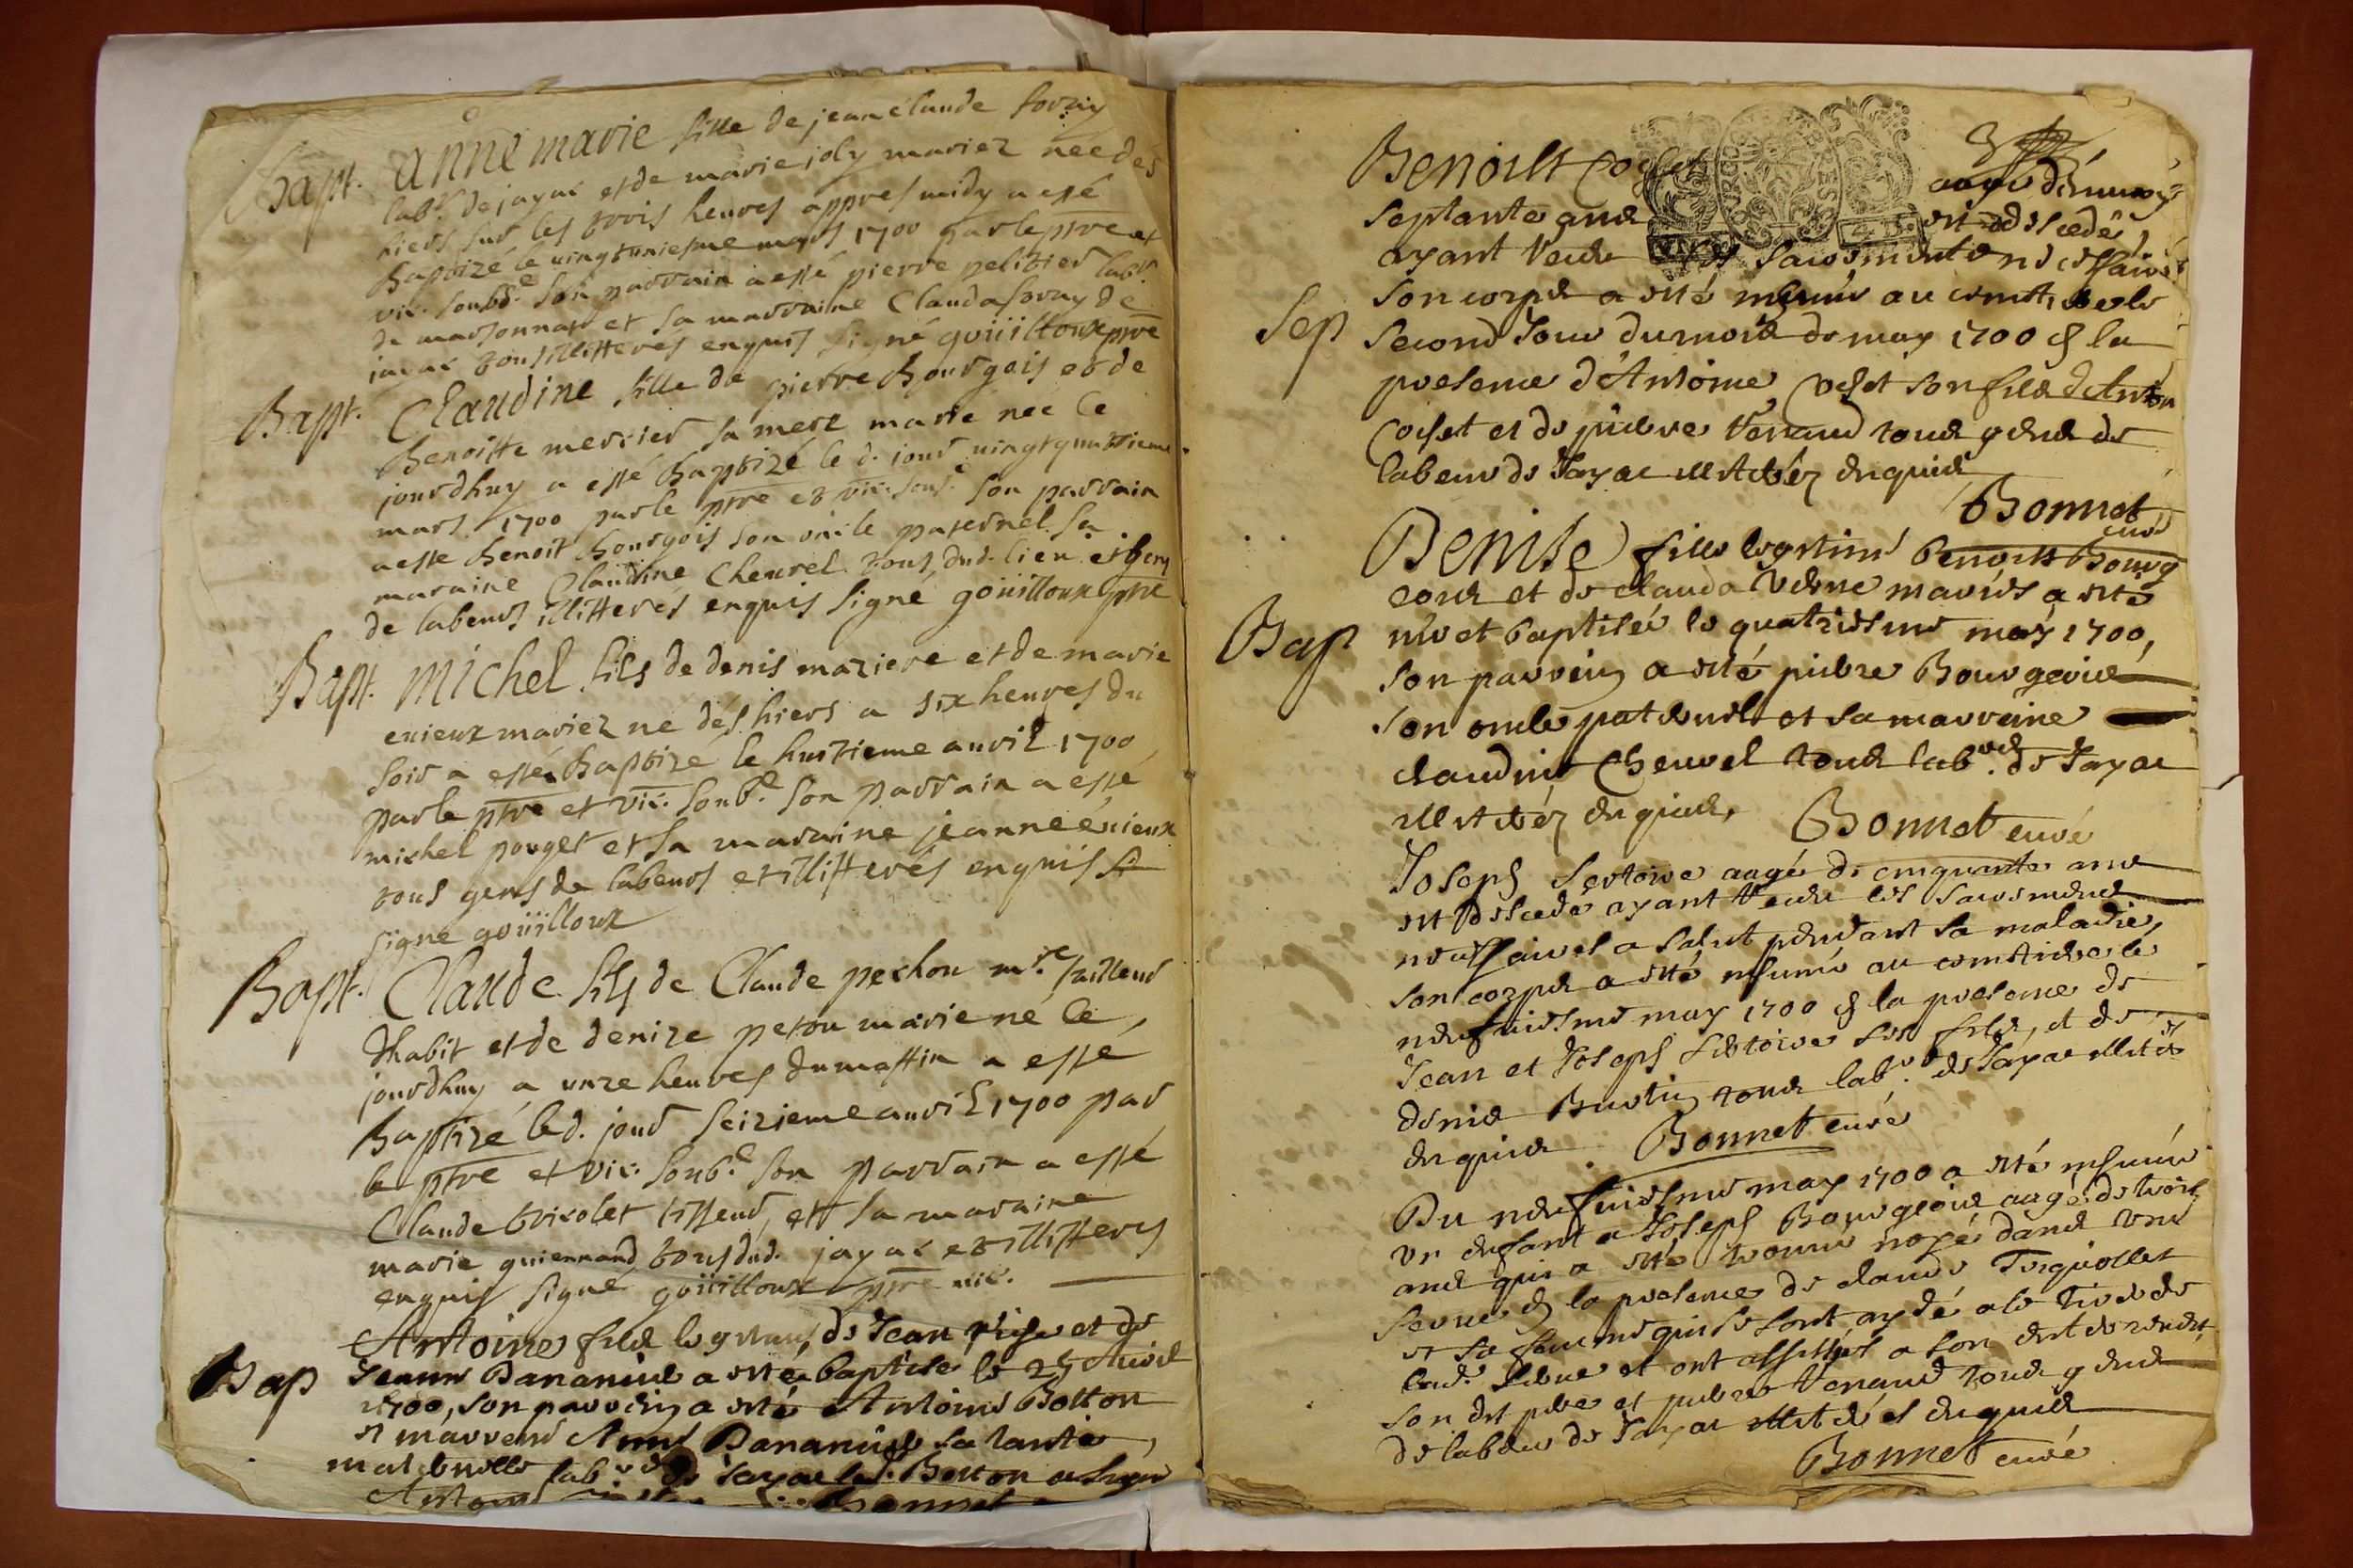 Bapt. Anne marie fille de jean claude
labr. de jayac et de marie joly mariez née dès
hiers sur les trois heures appres midy a esté
Baptizé le vingtuniesme mars 1700 par le ptre et
vic. soubsé. son parrain a esté pierre pelitier labr.
de marsonnas et sa marraine Clauda de
jayac tous illitteres enquis signé goüilloux ptre
Bapt. Claudine fille de pierre Bourgois et de
Benoitte mercier sa mere marié née ce
jourdhuy a esté Baptizé le d. jour vingtquatrieme
mars 1700 par le ptre et vic. sous. son parrain
a esté Benoit Bourgois son oncle paternel sa
maraine Claudine Chevrel tous dud. lieu et gens
de labeurs illitterés enquis signé goüilloux ptre
Bapt. Michel fils de denis maziere et de marie
enieux mariez né dés hiers a six heures du
soir a esté Baptizé le huitieme avril 1700
par le ptre et vic. soubé. son parrain a esté
michel pouget et sa maraine jeanne enieux
tous gens de labeurs et illitterés enquis
signé goüilloux
Bapt. Claude fils de Claude pechou mre. tailleur
dhabit et de denize peton marie né ce
jourdhuy a unze heures du mattin a esté
Baptizé led. jour seizieme avril 1700 par
le ptre et vic. soubé. son parrain a esté
Claude tricolet tisseur, et sa maraine
marie guiennand tous dud. jayac et illitteres
enquis signé goüilloux ptre vic.
Antoine filz legitime de Jean et de
Jeanne Bananiud a esté baptisé le 25 Avril
1700, son parrein a esté Antoine Botton
Bap
et marrene Anne Bananiud sa tante
maternelle labrs. de Jayac led. Botton a signé
Antoine Bonnet
Benoist Cochet aagé denviron
septante ans est decedé,
ayant receu les sacrements necessaires
son corps a esté inhumé au cemetiere le
Sep second Jour du mois de may 1700 en la
presence d'Antoine Cochet son filz d'Anton
Cochet et de pierre Venaud tous gens de
labeur de Jayac illiterez enquis
Bonnet
curé
Denise fille legitime benoist Bourg
eois et de clauda Verne mariés a esté
Bap née et baptisée le quatriesme may 1700,
son parrein a esté pierre Bourgeois
son oncle paternel et sa marreine
claudine Chevrel tous labrs. de Jayac
illiterez enquis, Bonnet curé
Joseph Sertoire aagé de cinquante ans
est decedé ayant receu les sacremens
necessaires a salut pendant sa maladie,
son corps a esté inhumé au cemetiere le
neufviesme may 1700 en la presence de
Jean et Joseph Sertoire ses filz, et de
denis Burtin tous labrs. de Jayac illiterés
enquis. Bonnet curé
Du neufviesme may 1700 a esté inhumé
un enfant a Joseph Bourgeois aagé de trois
ans qui a esté trouvé noyé dans une
serve en la presence de claude Terquollet
et sa femme qui se sont aydé a le tirer de
lad. serve et ont assistés a son enterrement
son dit pere et pierre Venaud tous gens
de labeur de Jayac illiterés enquis
Bonnet curé